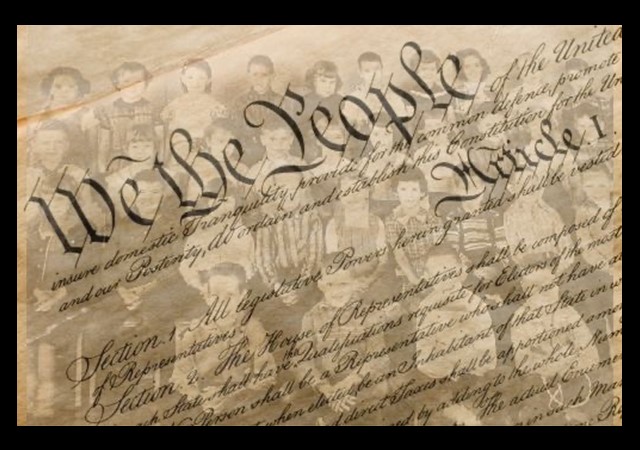 We the People of the United
insure domestic Tranquility, provide for the common defence, promote
and our Posterity, do ordain and establish this Constitution for the Un
Article I.
Section. 1. All legislative Powers herein granted shall be vested
of Representatives.
Section. 2. The House of Representatives shall be composed of
each State shall have Qualifications requisite for Electors of the most
Person shall be a Representative who shall not have a
when elected, be an Inhabitant of that State in w
direct Taxes shall be apportioned amo
by adding to the whole Num
The actual Enume